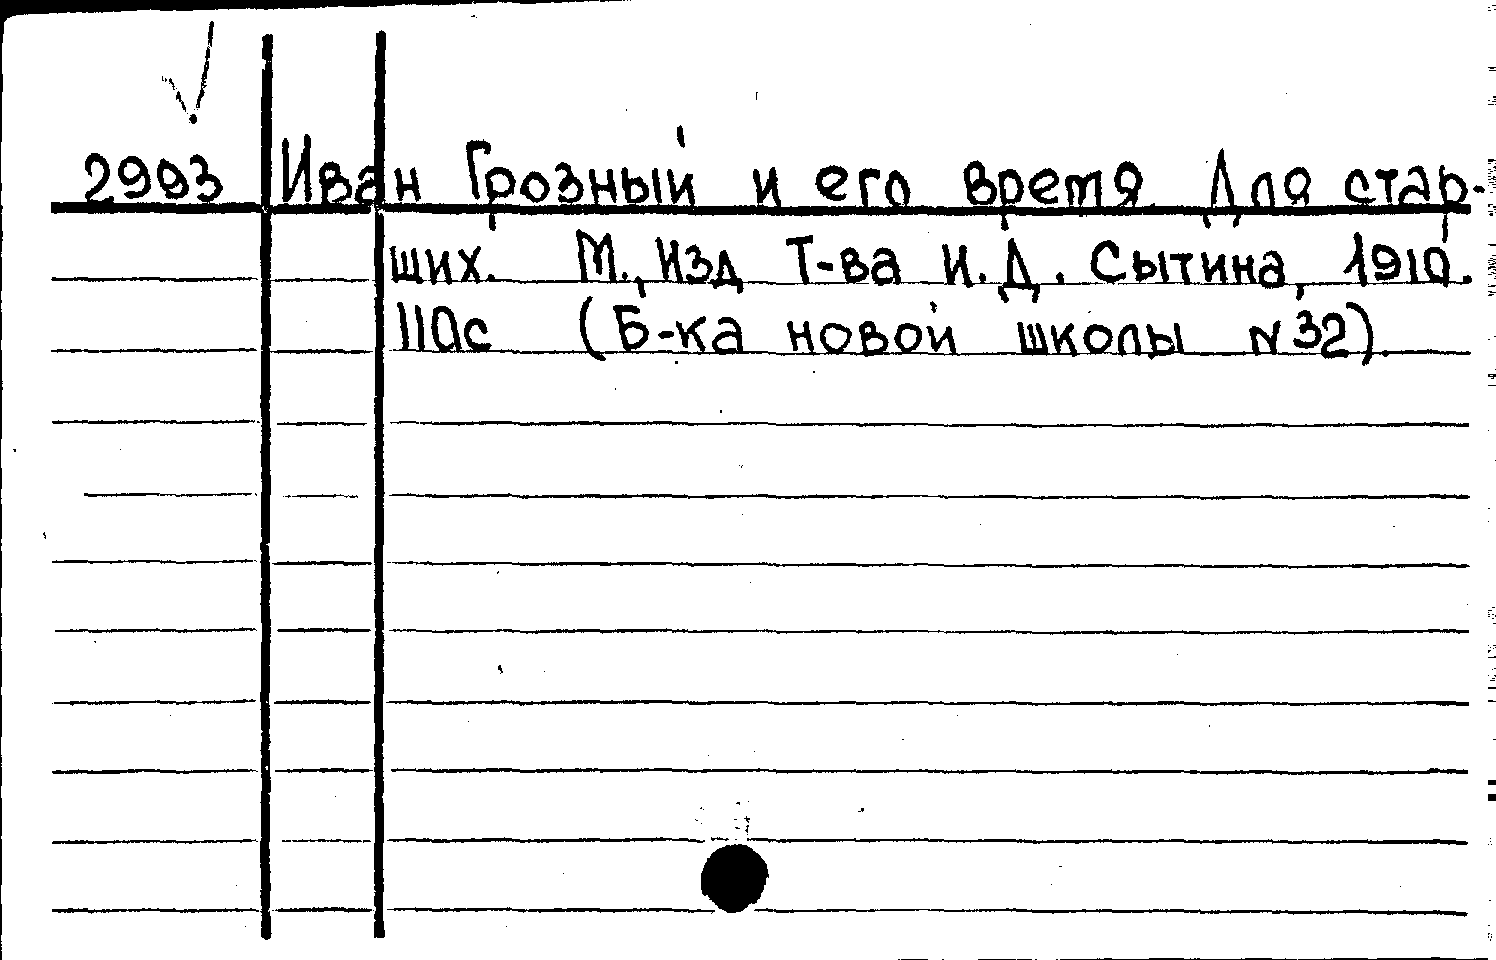 2993 Иван Грозный и его время. Для стар-
ших. М., Изд Т-ва И.Д. Сытина, 1910.
110с (Б-ка новой школы N32).